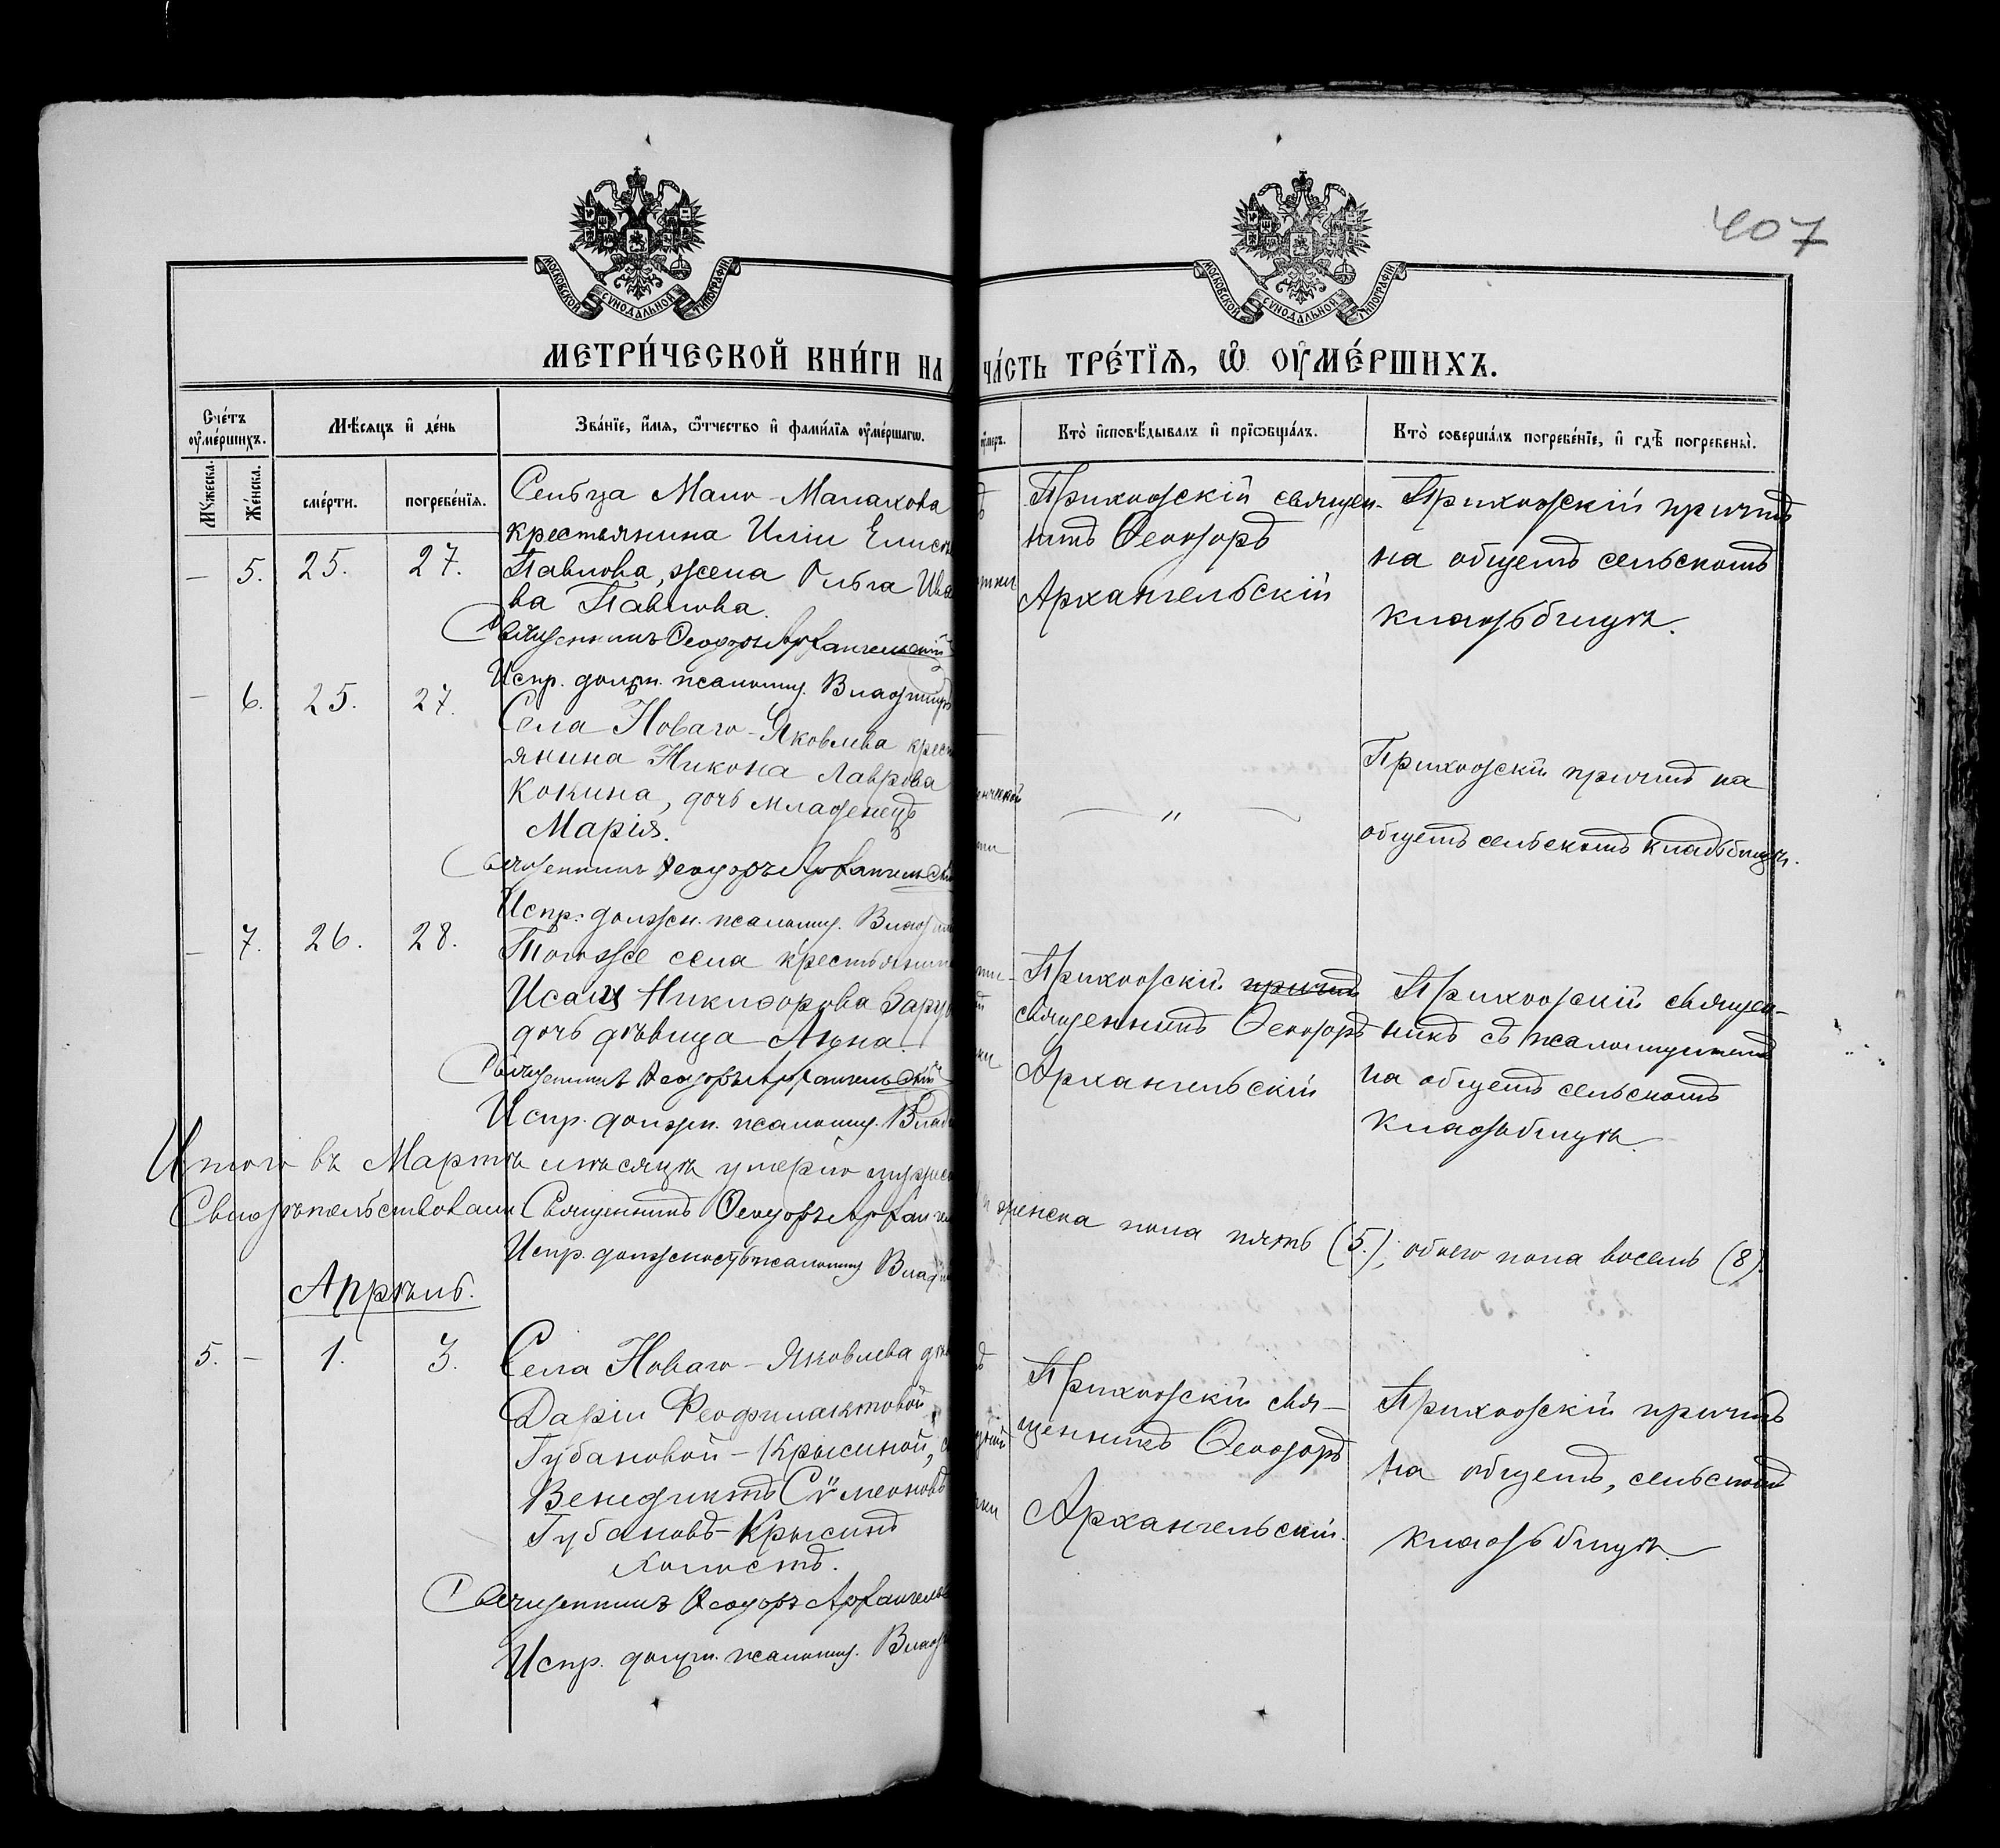 407
МОСКОВСКОЙ СѴНОДАЛЬНОЙ ТИПОГРАФІИ.
МОСКОВСКОЙ СѴНОДАЛЬНОЙ ТИПОГРАФІИ.
МЕТРИ́ЧЕСКОЙ КНИ́ГИ НА
ЧА́СТЬ ТРЕ́ТЇѦ, Ѿ ОУ҆МЕ́РШИХЪ.
Сче́тъ оу҆ме́ршихъ.
Мѣ́сяцъ и҆ де́нь
Зва́нїе, и҆́мя, ѻ҆́тчество и҆ фами́лїя оу҆ме́ршагѡ.
Кто̀ и҆сповѣ́дывалъ и҆ прїѡбща́лъ.
Кто̀ соверша́лъ погребе́нїе, и҆ гдѣ̀ погребены̀.
Мꙋ́жеска.
Же́нска.
сме́рти.
погребе́нїѧ.
— 5. 25. 27.
Сельца Мало-Малахова
крестьянина Иліи
Павлова, жена Ольга
ва Павлова.
Священникъ Ѳеодоръ Архангельскій
Испр. должн. псаломщ.
Приходскій священ-
никъ Ѳеодоръ
Архангельскій
Приходскій причтъ
на общемъ сельскомъ
кладбищѣ.
— 6. 25. 27.
Села Новаго-Яковлева
янина Никона Лаврова
Кокина, дочь младенецъ
Марія.
Священникъ Ѳеодоръ
Испр. должн. псаломщ.
— " —
Приходскій причтъ на
общемъ сельскомъ кладбищѣ.
— 7. 26. 28.
Тогоже села
Исаіи Никифорова
дочь дѣвица Анна.
Священникъ Ѳеодоръ Архангельскій
Испр. должн. псаломщ.
Приходскій причтъ
священникъ Ѳеодоръ
Архангельскій
Приходскій священ-
никъ съ псаломщикомъ
на общемъ сельскомъ
кладбищѣ.
Итого въ Мартѣ мѣсяцѣ умерло
женска пола пять (5.), обоего пола восемь (8).
Свидѣтельствовали: Священникъ Ѳеодоръ
Испр. должность псаломщ.
Апрѣль.
5. — 1. 3.
Села Новаго-Яковлева
Даріи Феофилактовой
Губановой-Крысиной,
Венедиктъ Сѵмеоновъ
Губановъ-Крысинъ
холостъ.
Священникъ Ѳеодоръ
Испр. должн. псаломщ.
Приходскій свя-
щенникъ Ѳеодоръ
Архангельскій.
Приходскій причтъ
на общемъ, сельскомъ
кладбищѣ.